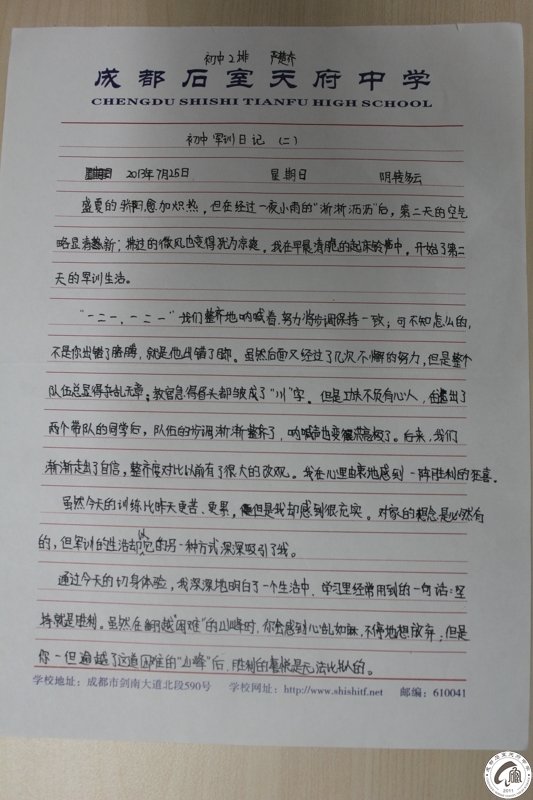 初中2排 严楚乔
成都石室天府中学
CHENGDU SHISHI TIANFU HIGH SCHOOL
初中军训日记（二）
2013年7月25日 星期日 阴转多云
盛夏的骄阳愈加炽热，但在经过一夜小雨的“淅淅沥沥”后，第二天的空气
略显清新；拂过的微风也变得尤为凉爽。我在早晨清脆的起床铃声中，开始了第二
天的军训生活。
“一二一，一二一”我们整齐地呐喊着，努力将步调保持一致；可不知怎么的，
不是你出错了胳膊，就是他出错了脚。虽然后面又经过了几次不懈的努力，但是整个
队伍总显得杂乱无章。教官急得眉头都皱成了“川”字。但是工夫不负有心人，在选出了
两个带队的同学后，队伍的步调渐渐整齐了，呐喊声也变得高极了。后来，我们
渐渐走出了自信，整齐度对比以前有了很大的改观。我在心里由衷地感到一阵胜利的狂喜。
虽然今天的训练比昨天更苦、更累，但是我却感到很充实。对家的想念是必然有
的，但军训的生活却以它的另一种方式深深吸引了我。
通过今天的切身体验，我深深地明白了一个生活中、学习里经常用到的一句话：坚
持就是胜利。虽然在翻越“困难”的山峰时，你会感到心乱如麻，不停地想放弃；但是
你一但逾越了这道困难的“山峰”后，胜利的喜悦是无法比拟的。
学校地址：成都市剑南大道北段590号 学校网址：http://www.shishitf.net 邮编：610041
2011